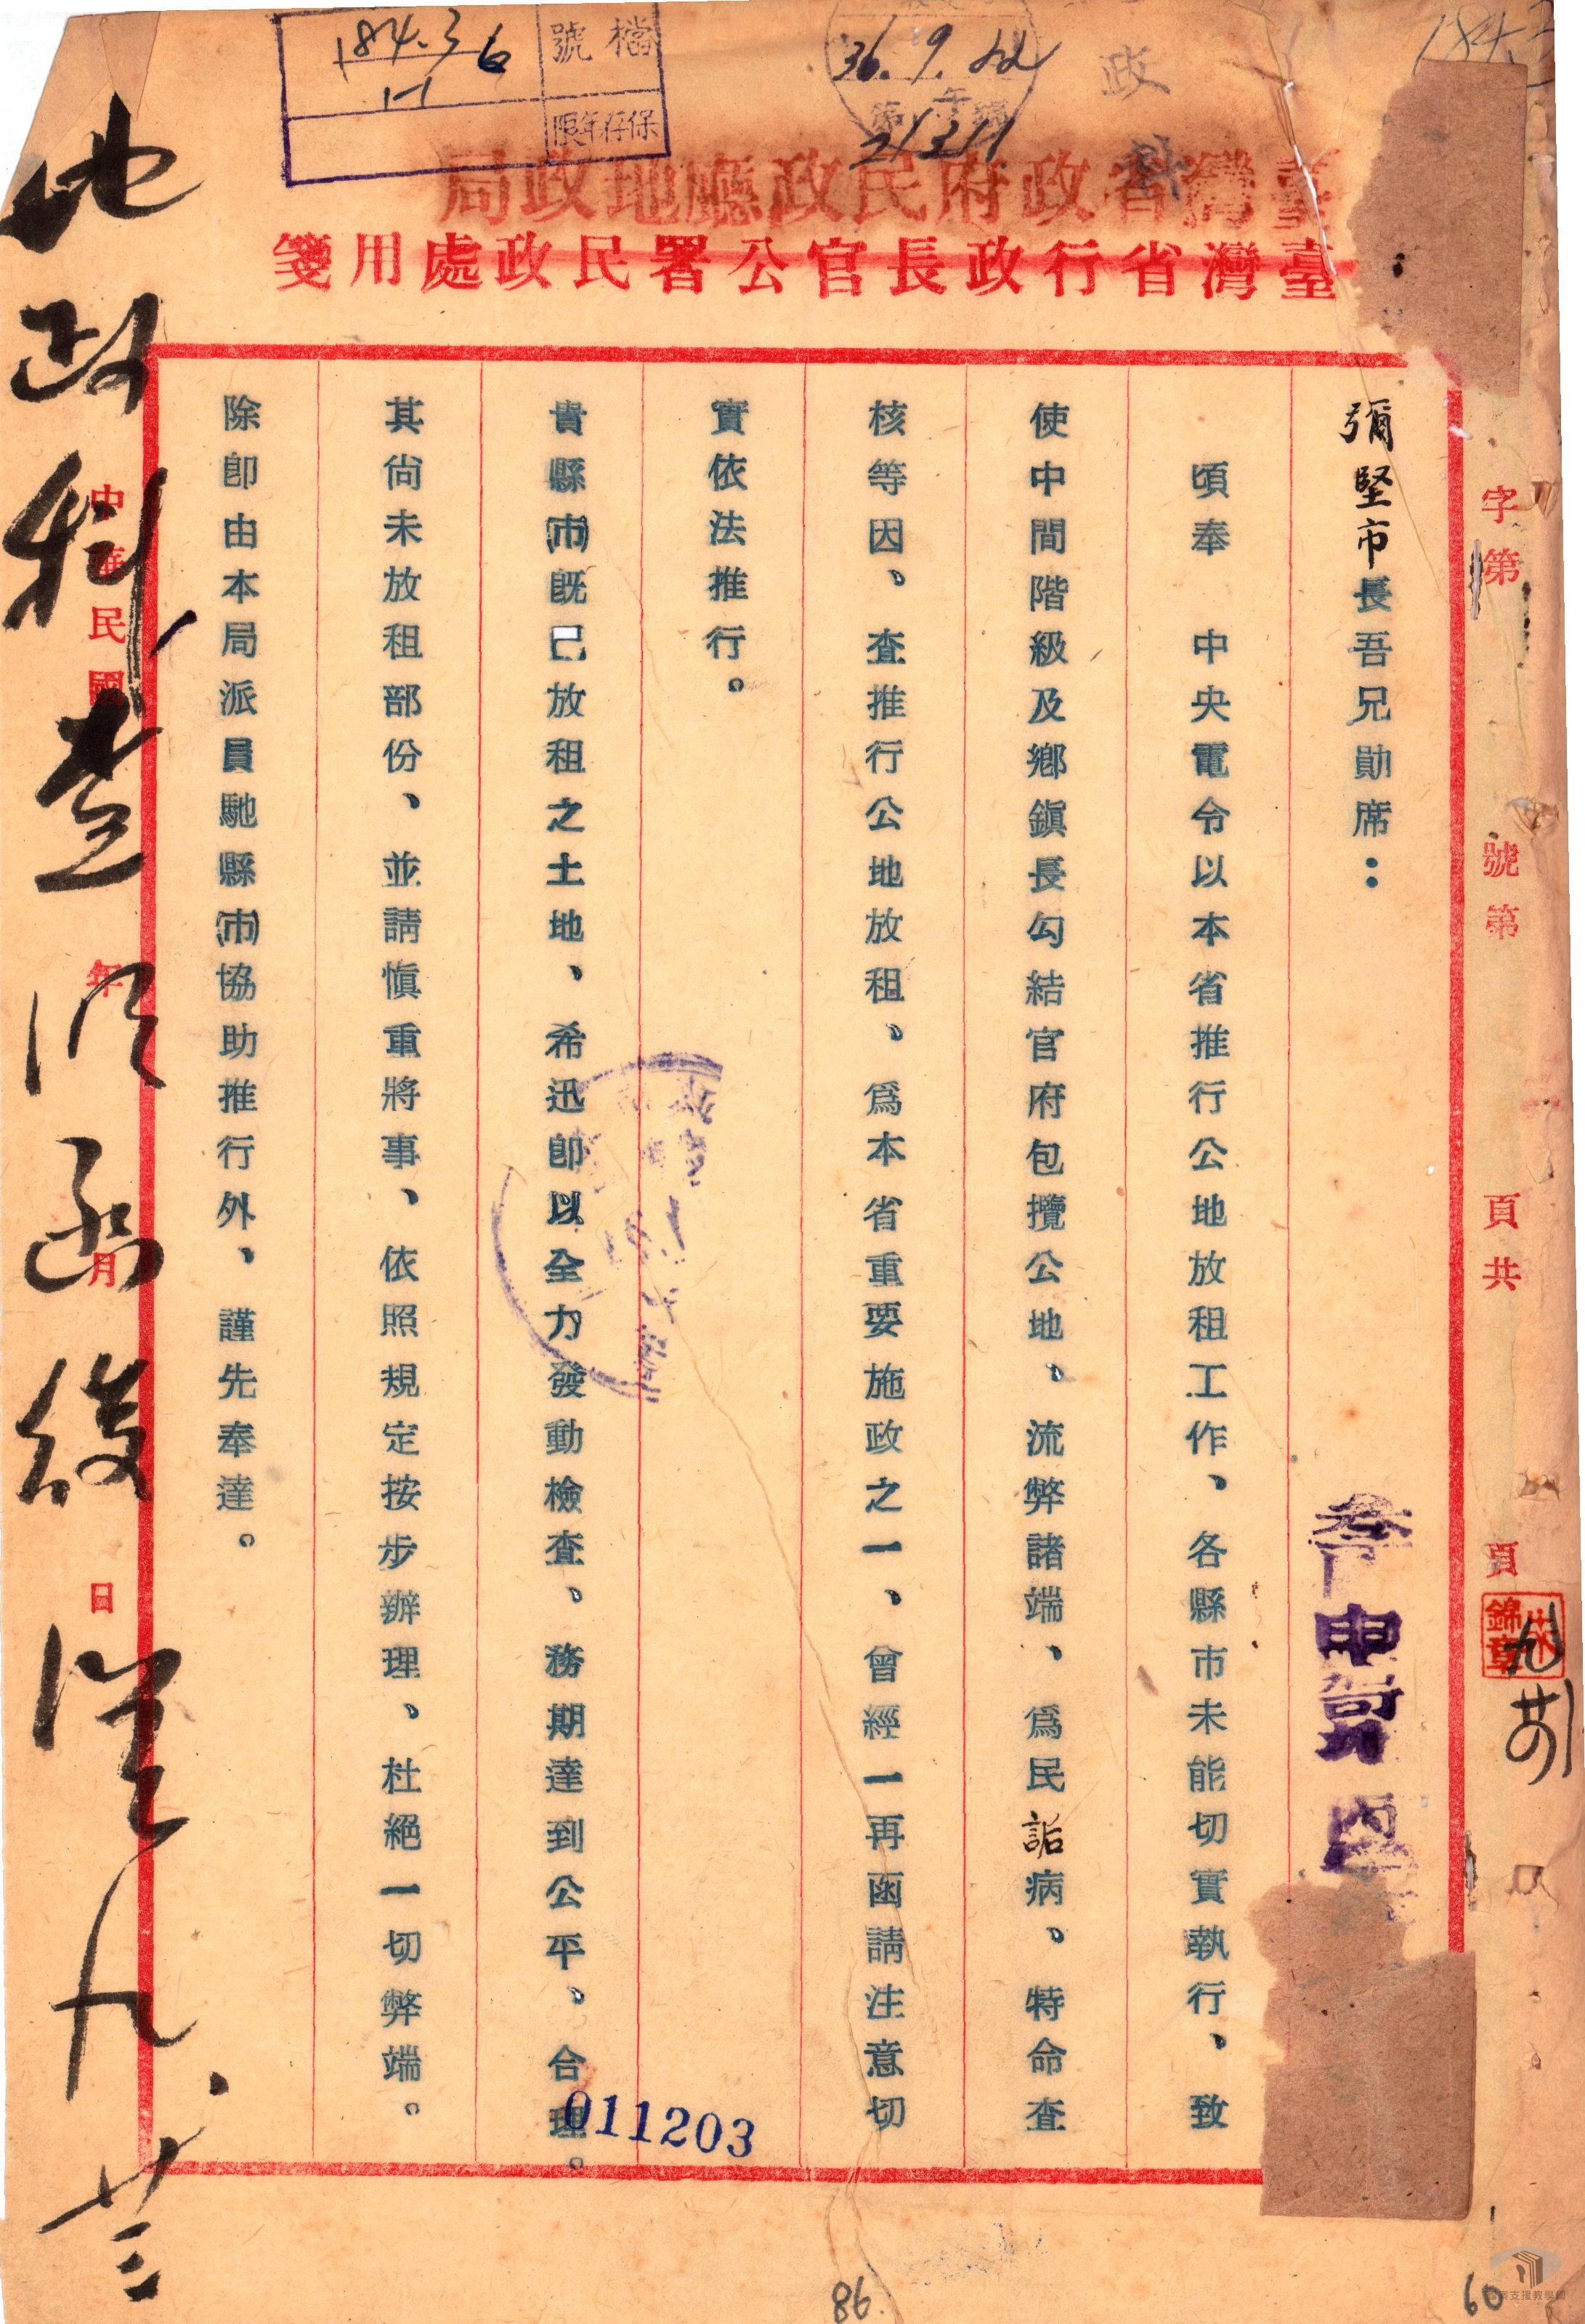 檔號
184.3
6
1-1
保存年限
36.9.22
21311
政
184.3
臺灣省政府民政廳地政局
臺灣省行政長官公署民政處用箋
字第
號第
頁共
頁
彌堅市長吾兄勛席：
頃奉 中央電令以本省推行公地放租工作、各縣市未能切實執行、致
使中間階級及鄉鎮長勾結官府包攬公地、流弊諸端、爲民詬病、特命查
核等因、查推行公地放租、爲本省重要施政之一、曾經一再函請注意切
實依法推行。
貴縣(市)既已放租之土地、希迅卽以全力發動檢查、務期達到公平、合理。
其尚未放租部份、並請愼重將事、依照規定按步辦理、杜絕一切弊端。
除卽由本局派員馳縣(市)協助推行外、謹先奉達。
中華民國 年 月 日
地政科查
九、廿三
011203
86
60